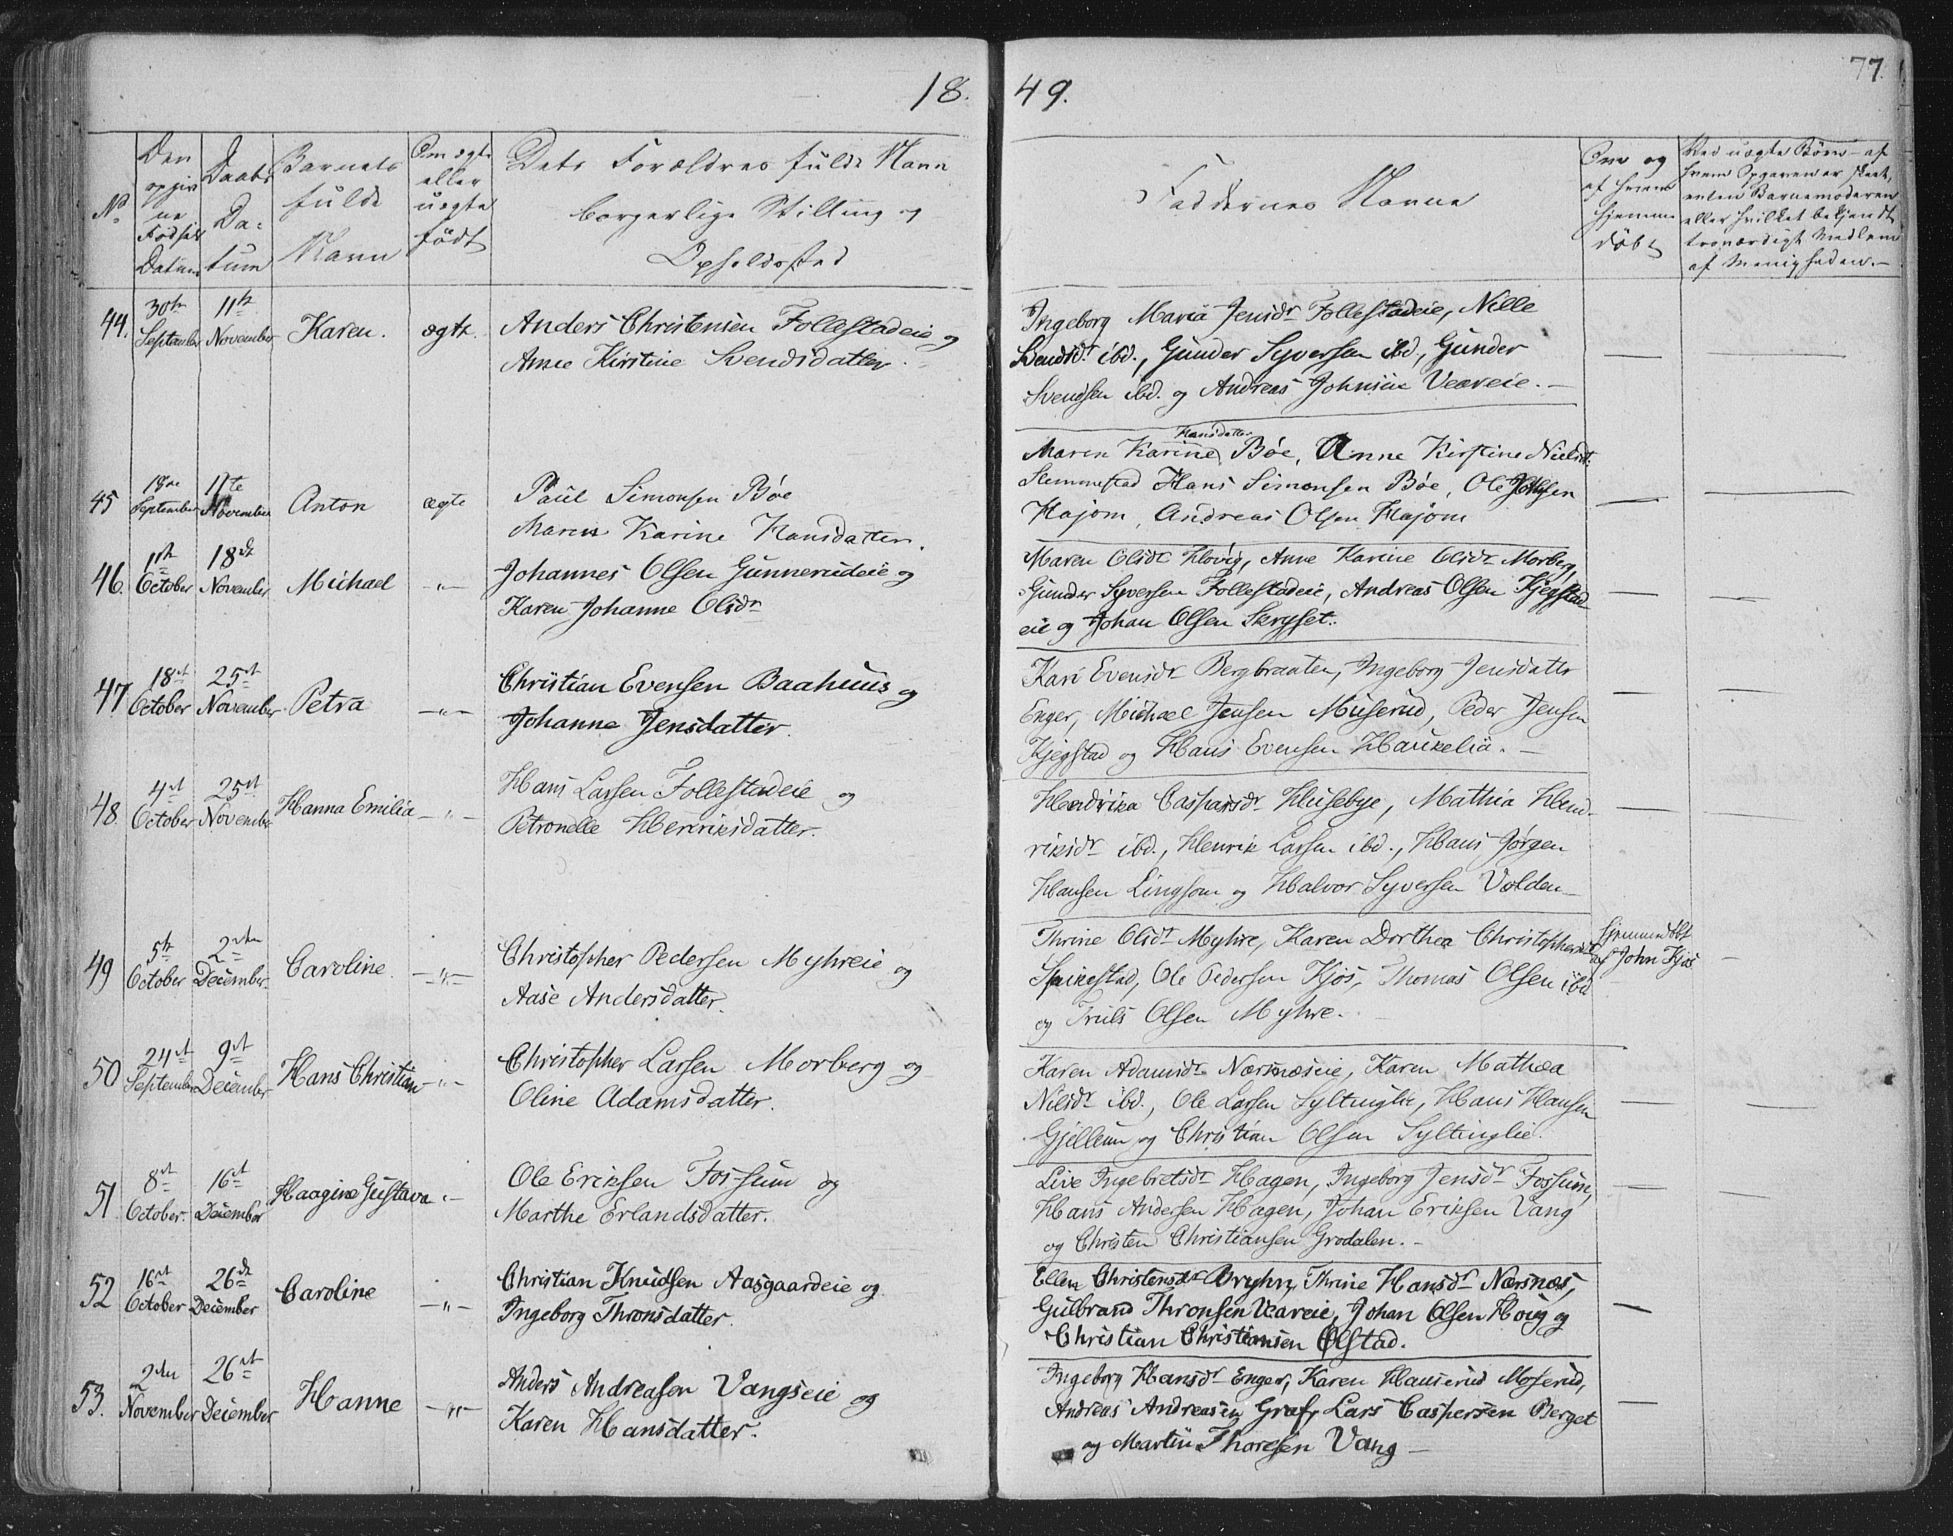 18.
49.
77.
No
Den opgivne Fødsels Datum
Daabs Datum
Barnets fulde Navn
Om ægte eller uægte født
Dets Forældres fulde Navn
borgerlige Stilling og
Opholdssted
Faddernes Navne
Om og af hvem hjemmedøbt
Ved uægte Børn - af
hvem Opgaven er skeet,
enten Barnemoderen
eller hvilket bekjendt
troværdigt Medlem
af Menigheden.-
44. 30te September 11te November Karen. ægte. Anders Christensen Follestadeie og
Anne Kirstine Svendsdatter.
Ingeborg Maria Jensdr Follestadeie, Nille
Svendsdr ibd., Gunder Syversen ibd., Gunder
Svendsen ibd. og Andreas Johnsen Veaveie. —
45 September 11te November Anton ægte Paul Simonsen Bøe
Maren Karine Hansdatter.
Maren Karine Hansdatter Bøe, Anne Kirstine Nielsdt.
Slemmestad Hans Simonsen Bøe, Ole
Hajom, Andreas Olsen Hajom
46. October 18de November Michael -"- Johannes Olsen Gunnerudeie og
Karen Johanne Olsdr
Maren Olsdr Høvig, Anne Karine Olsdr Morberg,
Gunder Syversen Follestadeie, Andreas Olsen Kjegstad-
eie og Johan Olsen Skryset.
47 18de October 25de November Petra -"- Christian Evensen Baahuus og
Johanne Jensdatter.
Kari Evensdr Bergbraaten, Ingeborg Jensdatter
Enger, Michael Jensen Muserud, Peder Jensen
Kjegstad og Hans Evensen Haukelia. —
48. 4de October 25de November Hanna Emilia -"- Hans Larsen Follestadeie og
Petronelle Henriksdatter.
Hendrika Caspersdr Husebye, Mathia Hend-
riksdr ibd., Henrik Larsen ibd., Hans Jørgen
Hansen Lingsom og Halvor Syversen Volden —
49 5te October 2den December. Caroline. -"- Christopher Pedersen Myhreie og
Aase Andersdatter.
Thrine Olsdr Myhre, Karen Dorthea Christophersdr
Spikestad, Ole Pedersen Kjos, Thomas Olsen ibd
og Truls Olsen Myhre.
hjemmedøbt
af John Kjos
50 24de September 9de December Hans Christian -"- Christopher Larsen Morberg og
Oline Adamsdatter.
Karen Adamsdr Nærsnæseie, Karen Mathea
Nilsdr ibd., Ole Larsen Syltinglie, Hans Hansen
Gjellum og Christian Olsen Syltinglie.
51 8de October. 16de December Haagine Gustava -"- Ole Eriksen Fossum og
Marthe Erlandsdatter.
Live Ingebretsdr Hagen, Ingeborg Jensdr Fossum,
Hans Andersen Hagen, Johan Eriksen Vang
og Christen Christiansen Grodalen. —
52 16de October 26de December Caroline -"- Christian Knudsen Aasgaardeie og
Ingeborg Thronsdatter.
Ellen Christensdr Bryhn, Thrine Hansdr Næsnæs,
Gulbrand Thronsen Veaveie, Johan Olsen Houg og
Christian Christiansen Ølstad.
53. 2den November 26de December Hanne -"- Anders Andreasen Vangseie og
Karen Hansdatter.
Ingeborg Hansdr Enger, Karen Moserud,
Andreas Andreasen Graf, Lars Caspersen Berget
og Martin Thoresen Vang —